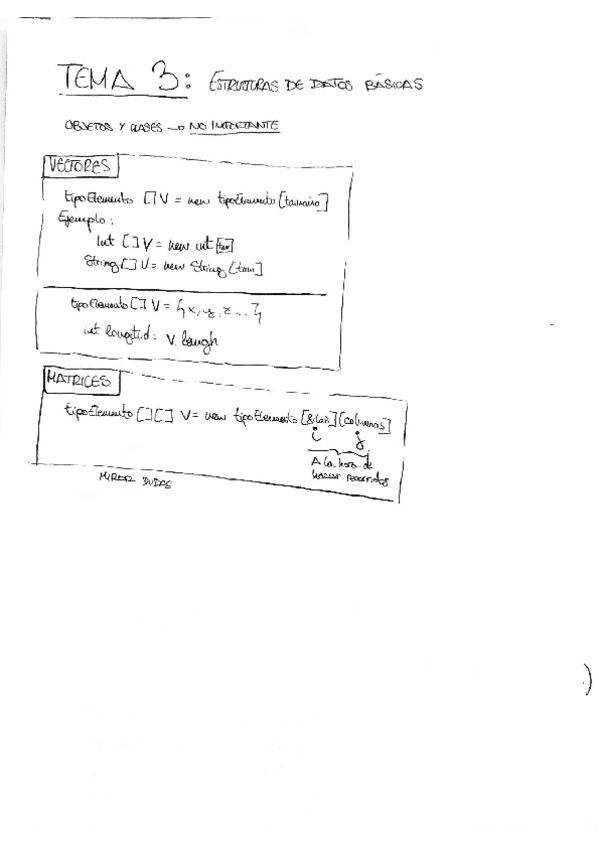 TEMA 3: ESTRUCTURAS DE DATOS BÁSICAS
OBJETOS Y CLASES → NO IMPORTANTE
VECTORES
tipoElemento [] V = new tipoElemento [tamaño]
Ejemplo:
Int [] V = new int [tam]
String [] V = new String [tam]
tipoElemento [] V = {x, y, z ...}
int longitud = V. lengh
MATRICES
tipoElemento [][] V = new tipoElemento [filas] [columnas]
i j
A la hora de
hacer recorridos
MIRAR DUDAS